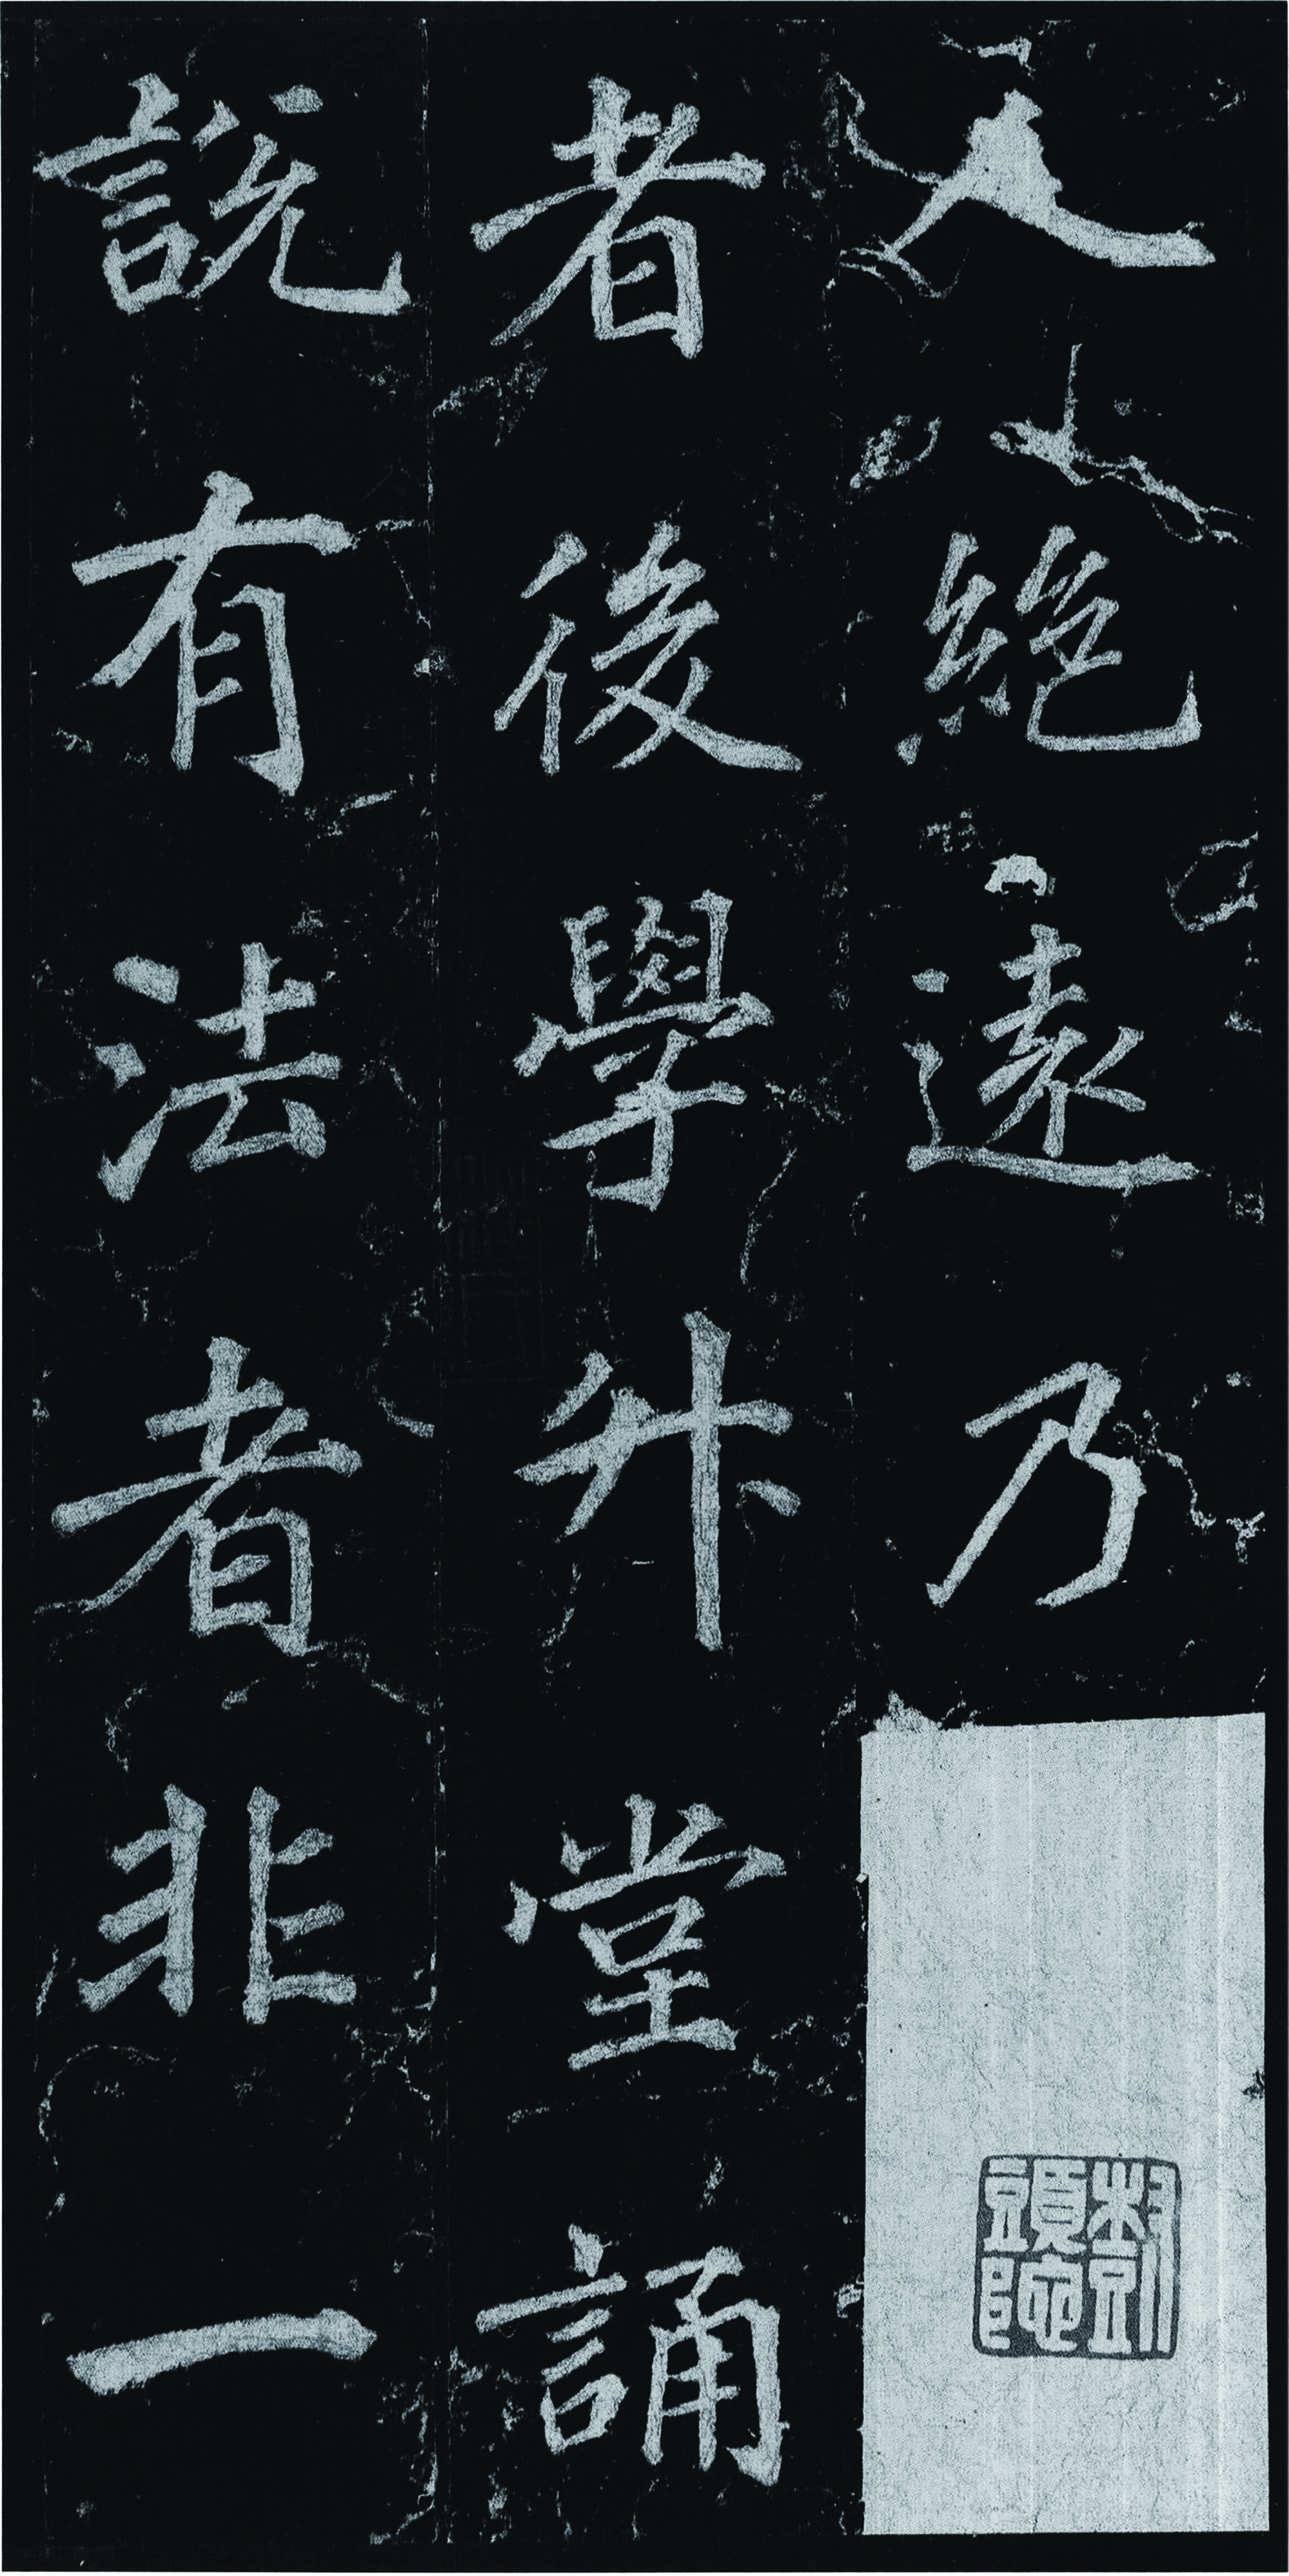 人
絕遠乃
者後學升堂誦
說有法者非一